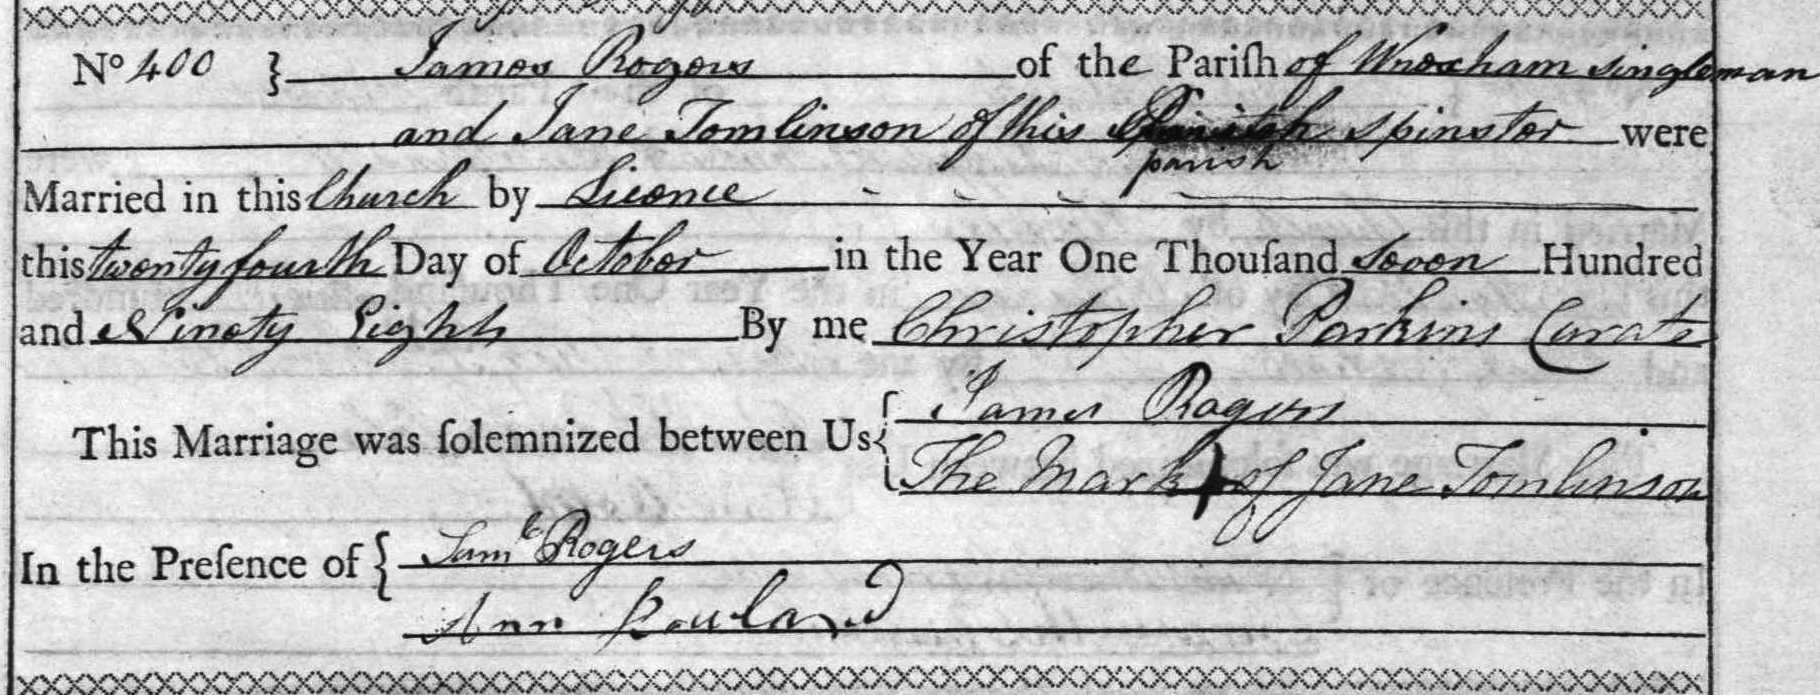 No 400 } James Rogers of the Pariſh of Wrexham singleman
and Jane Tomlinson of this parish spinster were
Married in this Church by Licence
this twenty fourth Day of October in the Year One Thouſand seven Hundred
and Ninety Eight By me Christopher Parkins Curate
This Marriage was ſolemnized between Us { James Rogers
The Mark of Jane Tomlinson
In the Preſence of { Saml Rogers
Ann Rowland